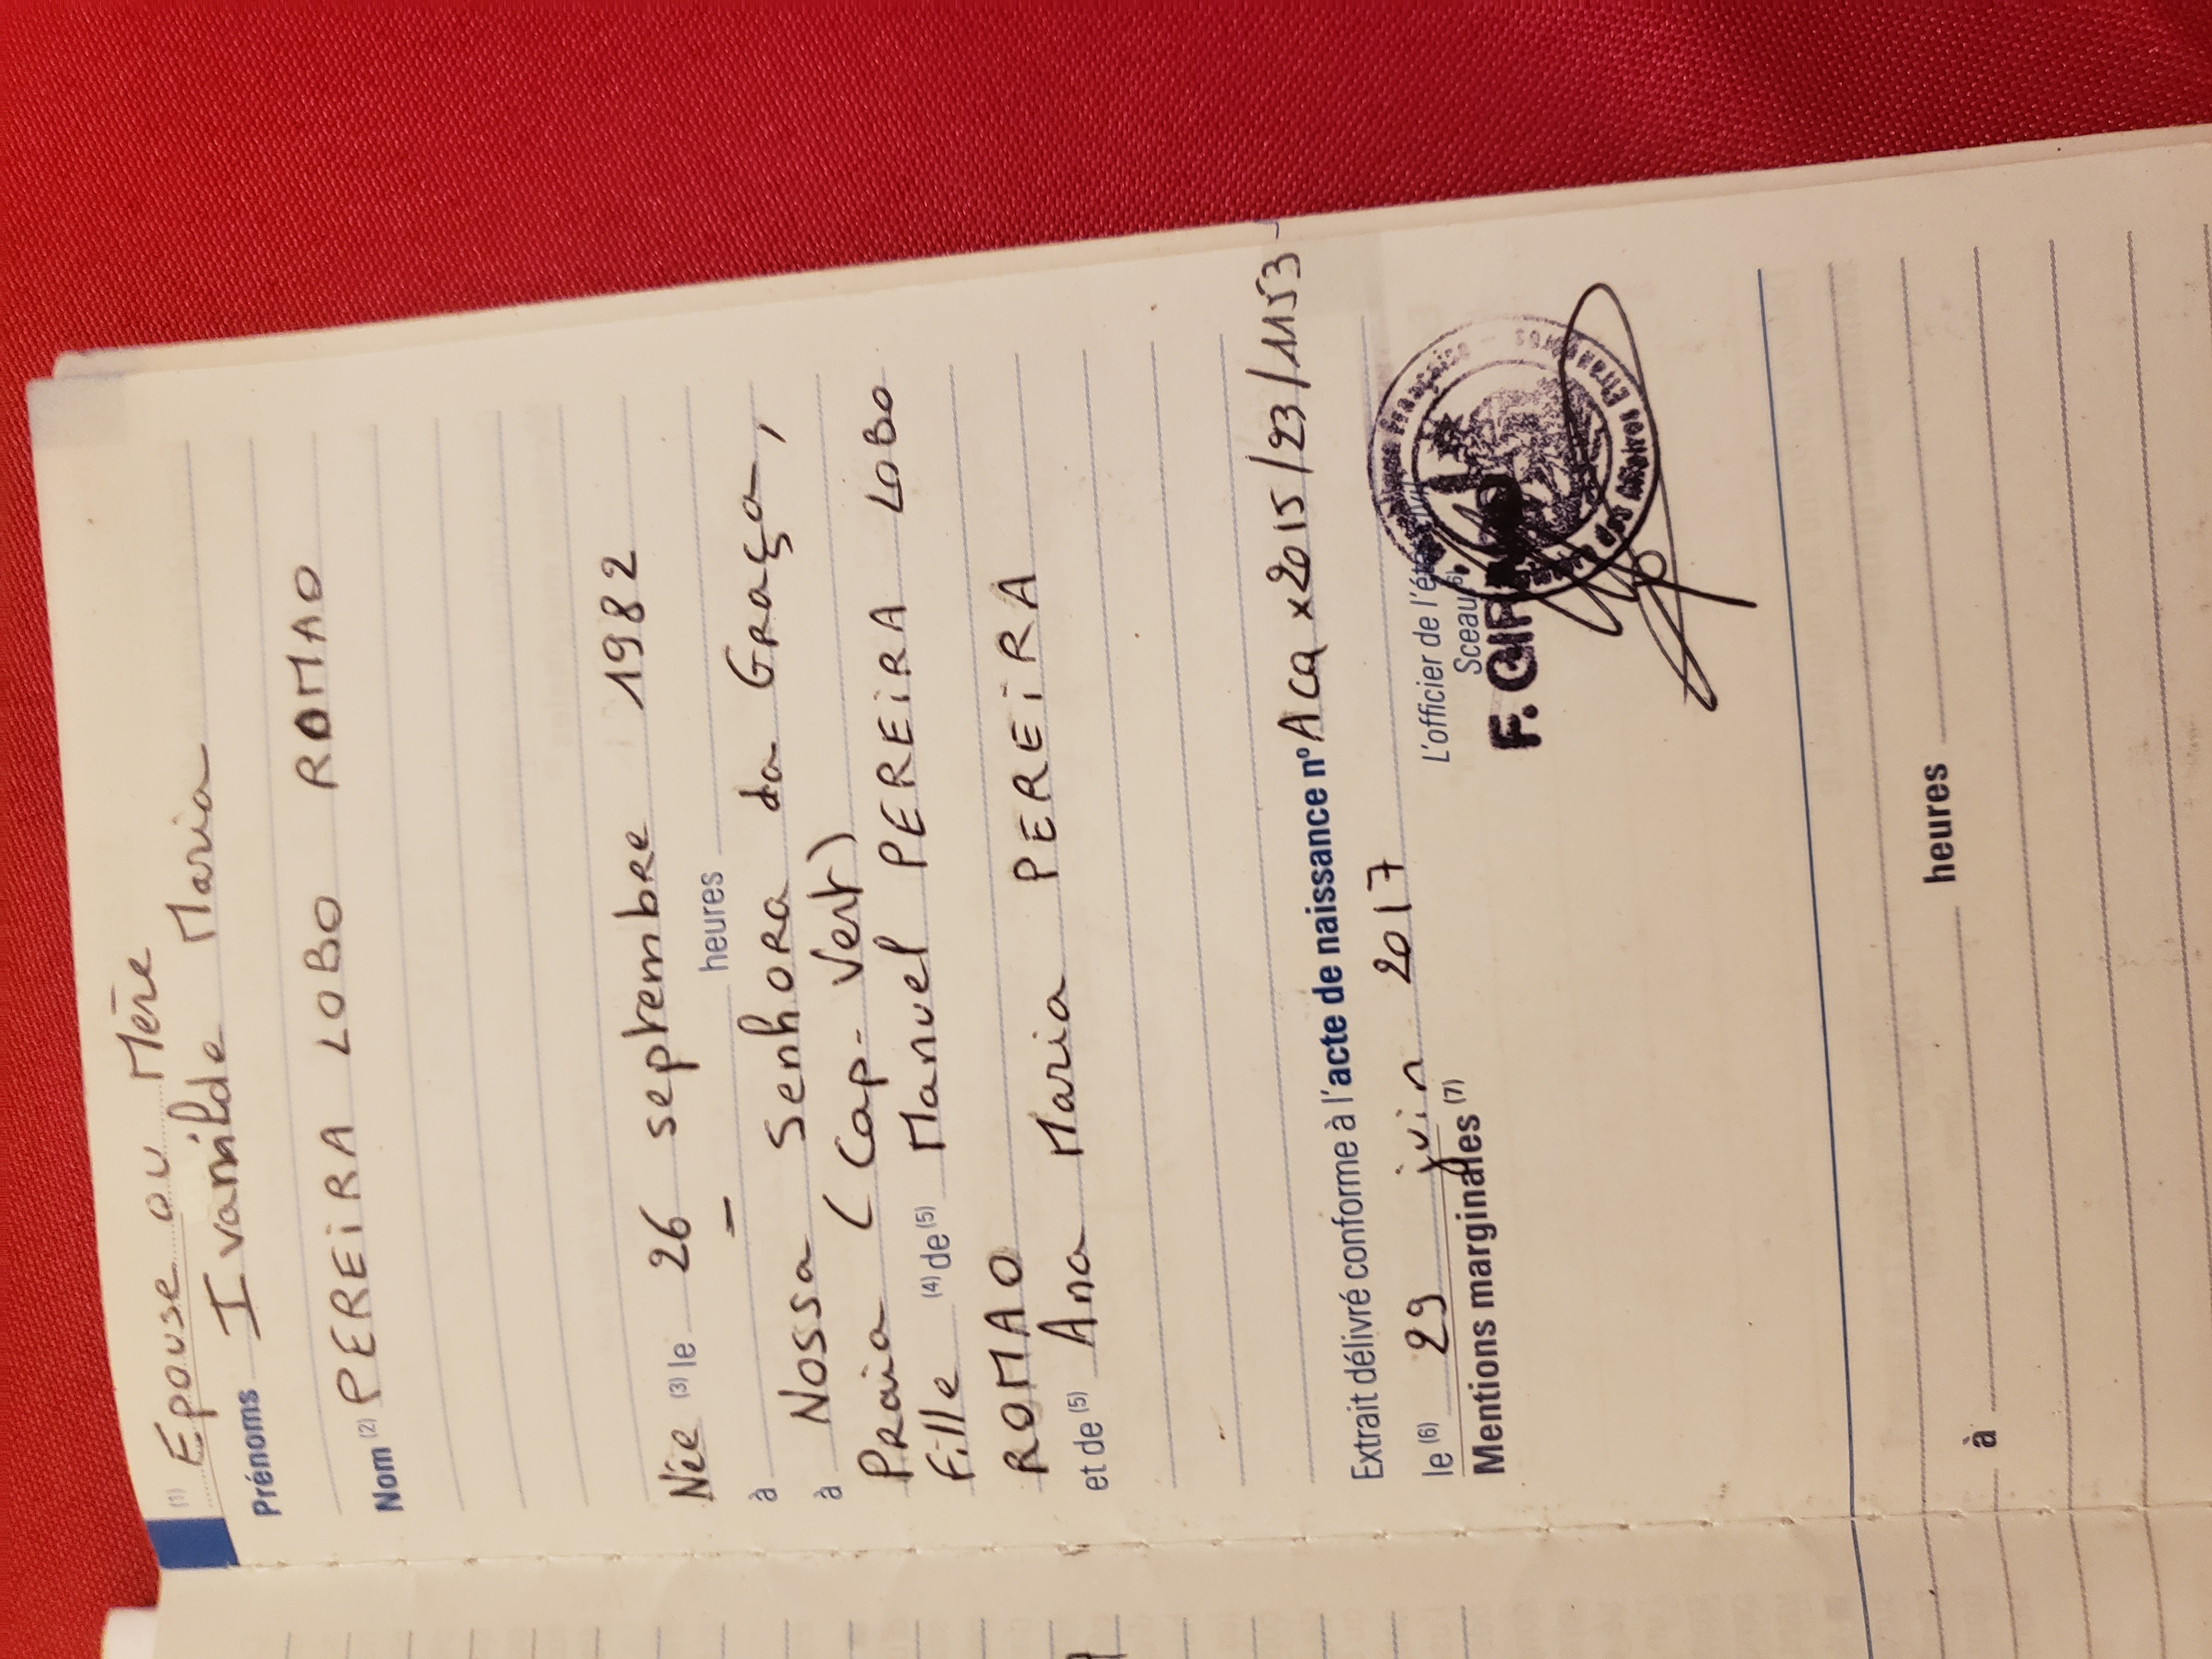 (1) Epouse ou Mère
Prénoms Ivanilde Maria
Nom (2) PEREIRA LOBO ROMAO
Née (3) le 26 septembre 1982
à — heures
à Nossa Senhora da Graça,
Praia (Cap-Vert)
Fille (4) de (5) Manuel PEREIRA LOBO
ROMAO
et de (5) Ana Maria PEREIRA
Extrait délivré conforme à l'acte de naissance n° Aca x2015/23/1153
le (6) 29 juin 2017
L'officier de l'état
Sceau (6)
F.
Mentions marginales (7)
à heures